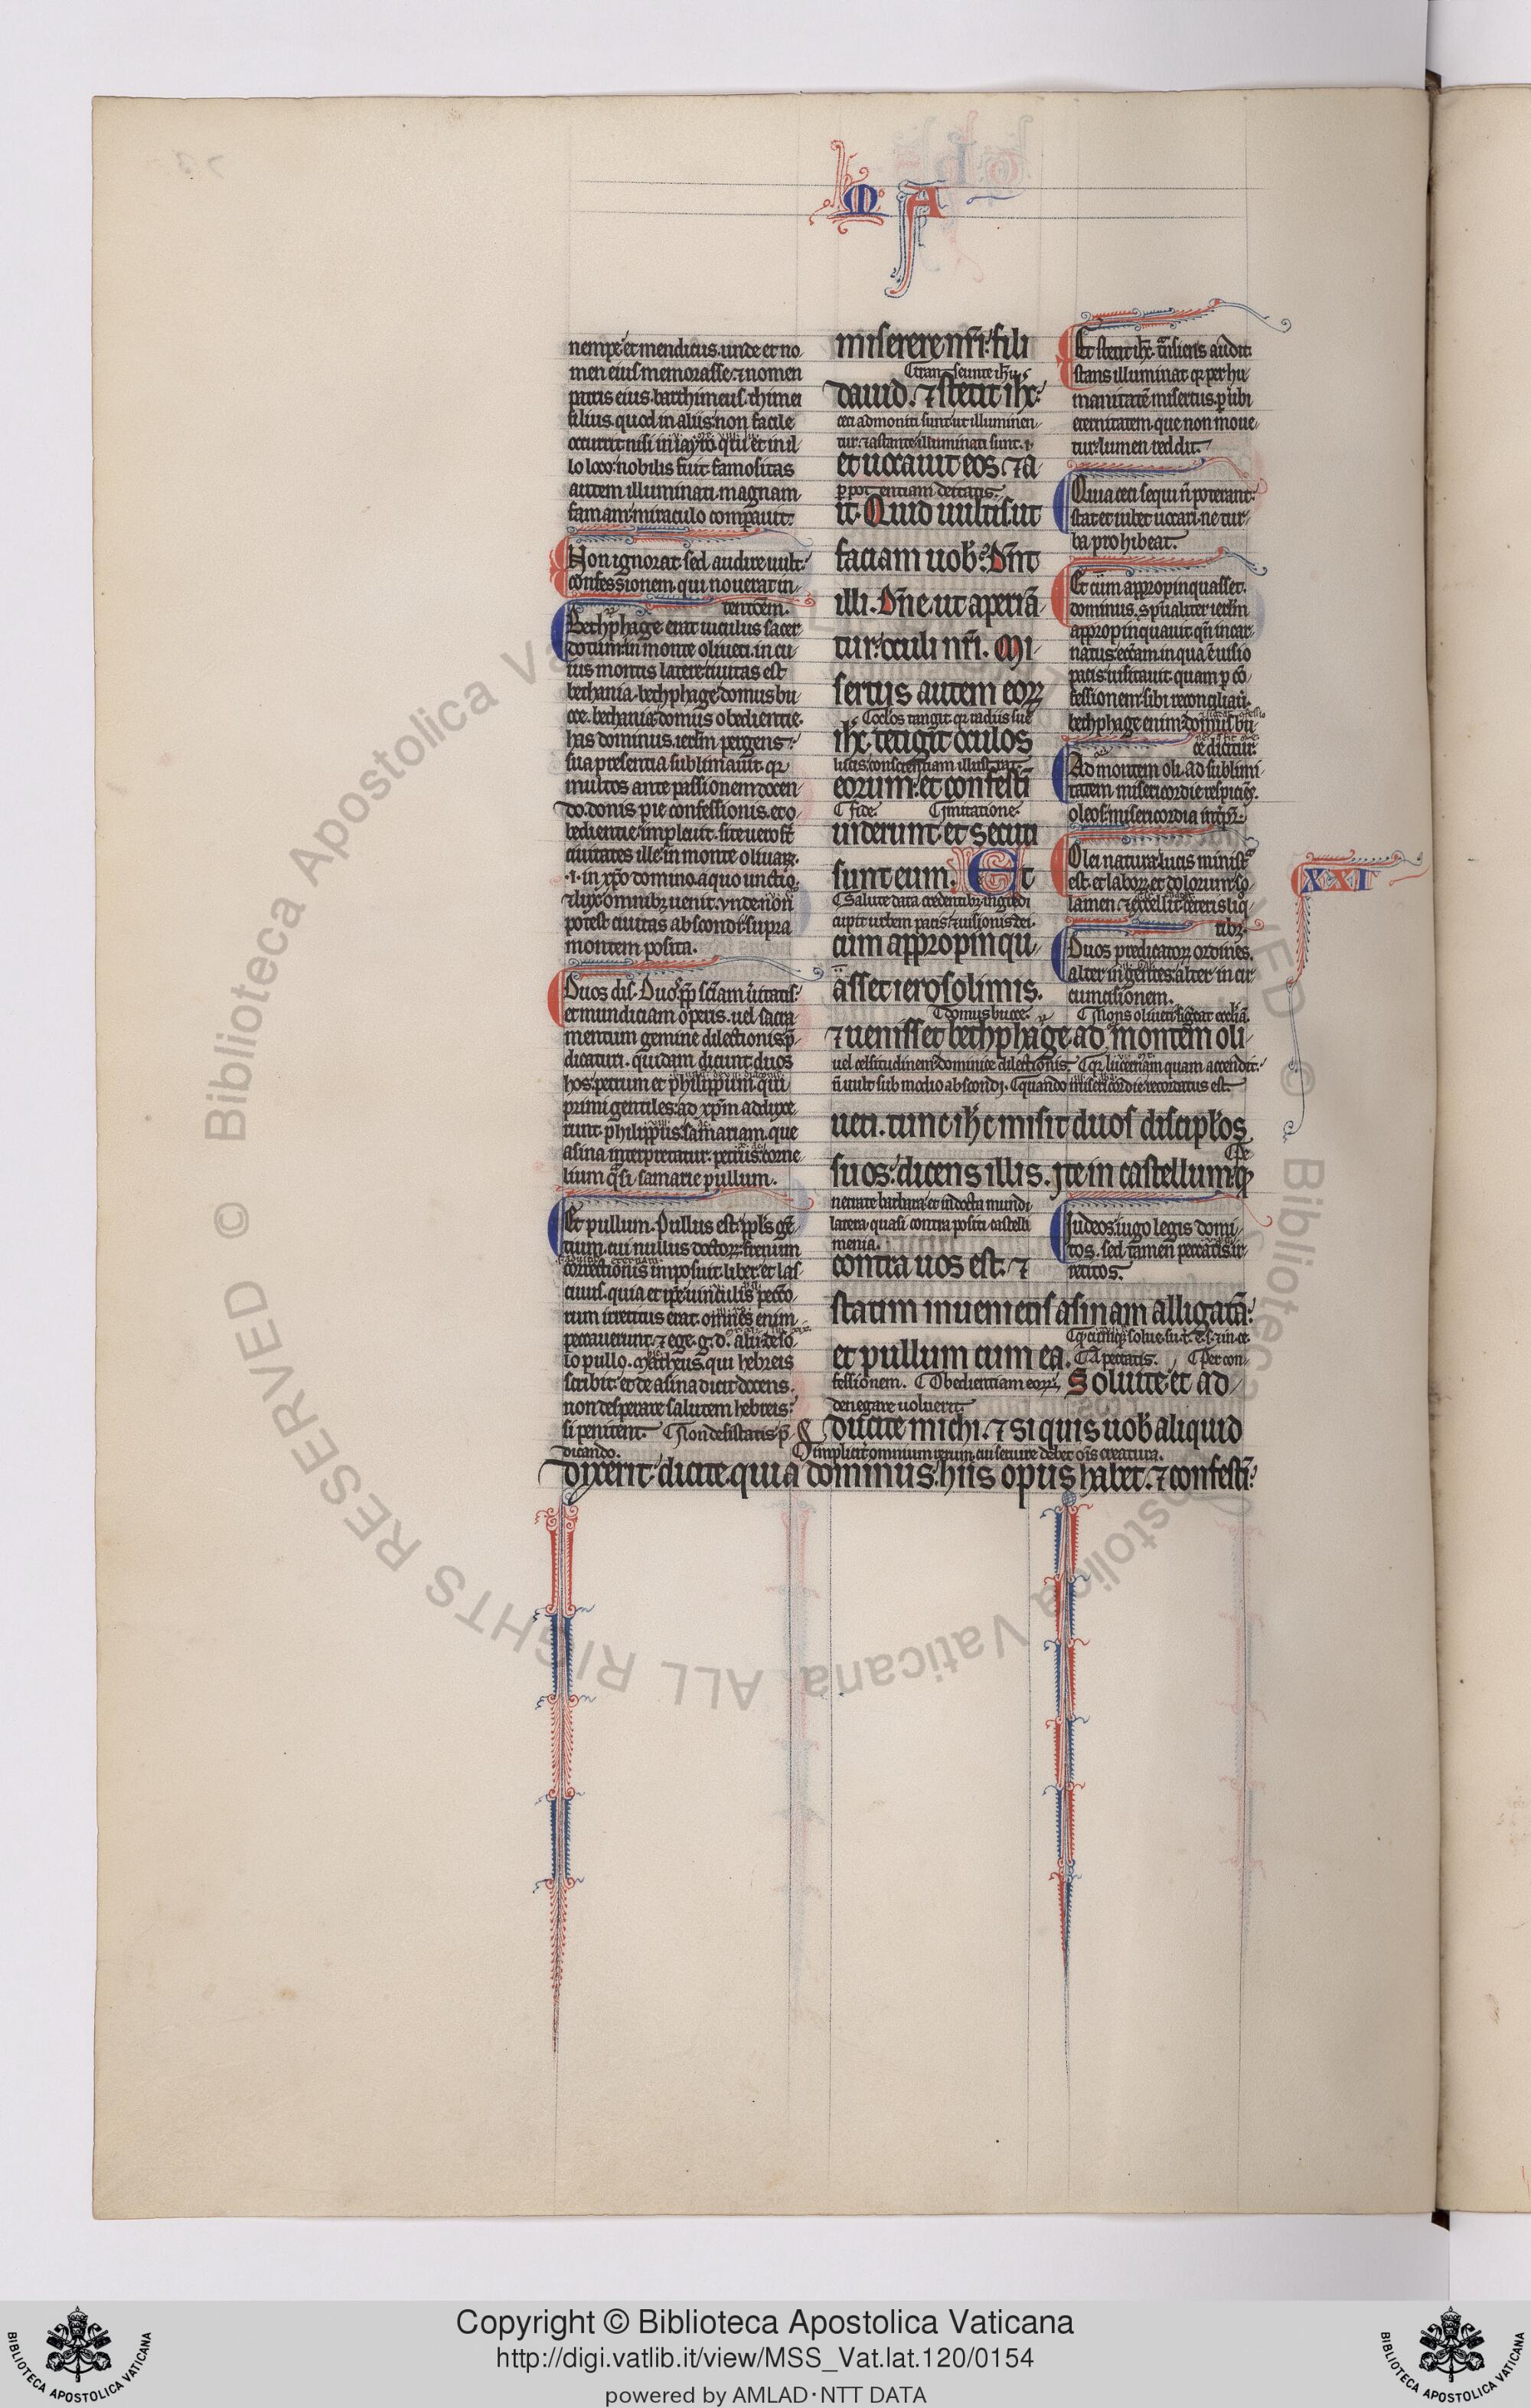 M A
nempe et mendicus. unde et no
men eius memorasse. ⁊ nomen
patris eius. barthimeus. thimei
filius. quod in aliis non facile
occurrit nisi in layro q̄tū et in il
lo loco. nobilis fuit famositas
autem illuminati. magnam
famam. miraculo comparauit.
Non ignorat. sed audire uult.
confessionem qui nouerat in
tentōem.
Bethphage erat uiculus sacer
dotum. in monte oliueti. in cu
ius montis latere ciuitas est
bethania. bethphage domus bu
cce. bethania domus obedientie.
has dominus. ierlm̄ pergens.
sua presentia sublimauit. qr
multos ante passionem docen
do. donis pie confessionis. et o
bedientie impleuit. site uero st̄
ciuitates ille in monte oliuarꝝ.
.i. in xp̄o domino. a quo unctio
⁊ lux omnibꝫ uenit. vnde non
potest ciuitas abscondi supra
montem posita.
Duos dis. Duos. p̄p̄ sc̄iam ueritatis.
et mundiciam operis. uel sacra
mentum gemine dilectionis p̄
dicaturi. quidam dicunt duos
hos. petrum et philippum. qui
primi gentiles. ad xp̄m adduxe
runt. philippus. samariam. que
asina interpretatur. petrus. corne
lium q̄si samarie pullum.
Et pullum. Pullus est. pp̄ls gē
tium. cui nullus doctorꝝ. frenum
correctionis imposuit. liber. et las
ciuus. quia et ip̄e uinculis pecc̄o
rum irretitus erat. omnes enim
peccauerunt. ⁊ ege. g. d. alii de so
lo pullo. Matheus. qui hebreis
scribit. et de asina dicit. docens.
non desperare salutem hebreis.
si peniteat. Non desistatis p̄
dicando.
miserere nr̄i. fili
transeunte ih̄u
dauid. ⁊ stetit ih̄c.
ceci admoniti sunt ut illuminen
tur. ⁊ astante illuminati sunt.
et uocauit eos. ⁊ a
per potentiam deitatis.
it. Quid uultis ut
faciam uob̄. Dn̄t
illi. Dn̄e. ut aperiā
tur. oculi nr̄i. Mi
sertus autem eorꝝ
Oculos tangit. qr radiis sue
ih̄c. tetigit oculos
lucis. conscientiam illustrat.
eorum. et confestī
fide. imitatione.
uiderunt. et secuti
sunt eum. Et
Salute data credentibꝫ. ingredi
cupit urbem pacis. ⁊ uisionis dei.
cum appropinqu
asset ierosolimis.
domus bucce. Mons oliueti. sig̅eat ecclīā.
⁊ uenisset bethphage. ad montem oli
uel celsitudinem dominice dilectionis. qr lucernam quam accendit.
n̄ uult sub modio abscondi. quando misericordie recordatus est.
ueti. tunc ih̄c misit duos discipl̄os
suos. dicens illis. Ite in castellum. qd̄
necate barbara. et indocta mundi
latera. quasi contra positi castelli
menia.
contra uos est. ⁊
statim inuenietis asinam alligatā.
et pullum cum ea. A peccatis. Per con
fessionem. Obedientiam eorꝝ. Soluite. et ad
denegare uoluerit
ducite michi. ⁊ si quis uob̄ aliquid
Simpliciter omnium rerum. cui seruire debet ois creatura.
dixerit. dicite. quia dominus. hiis opus habet. ⁊ confestī.
Et stetit ih̄c. transiens audit.
stans illuminat. qr per hu
manitatē misertus. per ubi
eternitatem. que non moue
tur. lumen reddit.
Quia ceci sequi n̄ poterant.
stat et iubet uocari. ne tur
ba prohibeat.
Et cum appropinquasset.
dominus. sp̄ualiter ierlm̄
appropinquauit. qn̄ incar
natus. ecc̄iam. in qua ē uisio
pacis. uisitauit. quam p̄ cō
fessionem. sibi reconciliauit.
bethphage enim. domus bu
cce dicitur.
Ad montem oli. ad sublimi
tatem misericordie respiciens.
oleos. misericordia interpr̄.
Olei natura. lucis ministra
est. et laborꝝ. et dolorum. so
lamen. ⁊ excellit ceteris liq
ribꝫ.
Duos predicatorꝝ ordines.
alter in gentes. alter in cir
cumcisionem.
Iudeos. iugo legis domi
tos. sed tamen peccatis ir
retitos.
XXI
© Biblioteca Apostolica Vaticana ALL RIGHTS RESERVED
Copyright © Biblioteca Apostolica Vaticana
http://digi.vatlib.it/view/MSS_Vat.lat.120/0154
powered by AMLAD·NTT DATA
BIBLIOTECA APOSTOLICA VATICANA
BIBLIOTECA APOSTOLICA VATICANA